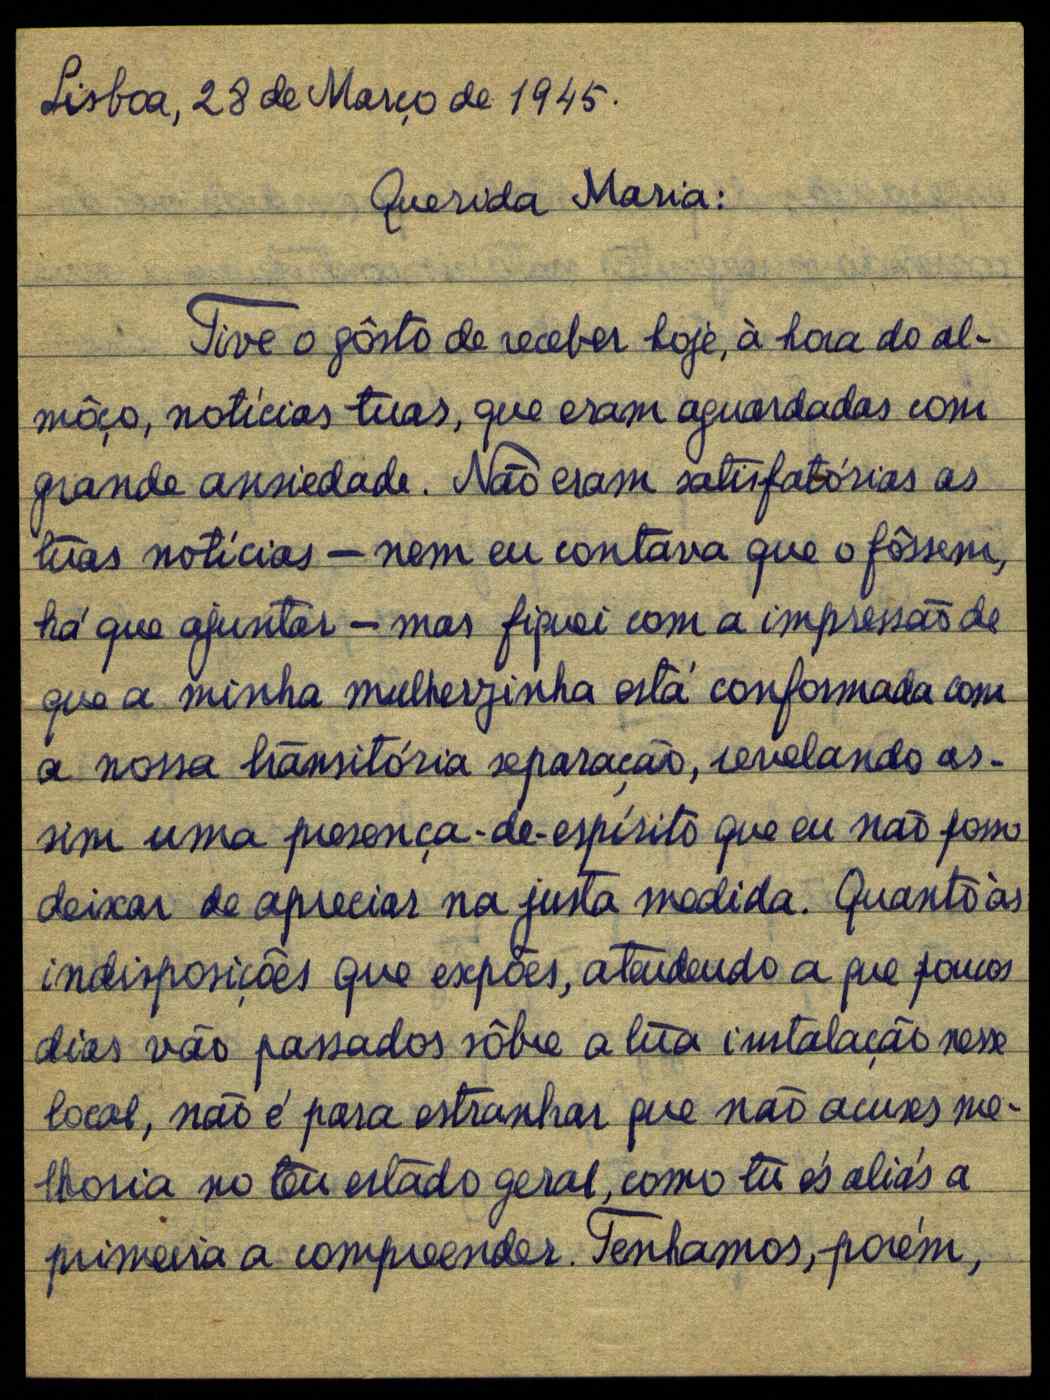 Lisboa, 28 de Março de 1945.
Querida Maria:
Tive o gôsto de receber hoje, à hora do al-
môço, notícias tuas, que eram aguardadas com
grande ansiedade. Não eram satisfatórias as
tuas notícias — nem eu contava que o fôssem,
há que ajuntar — mas fiquei com a impressão de
que a minha mulherzinha está conformada com
a nossa transitória separação, revelando as-
sim uma presença-de-espírito que eu não posso
deixar de apreciar na justa medida. Quanto às
indisposições que expões, atendendo a que poucos
dias vão passados sôbre a tua instalação nesse
local, não é para estranhar que não acuses me-
lhoria no teu estado geral, como tu és aliás a
primeira a compreender. Tenhamos, porém,